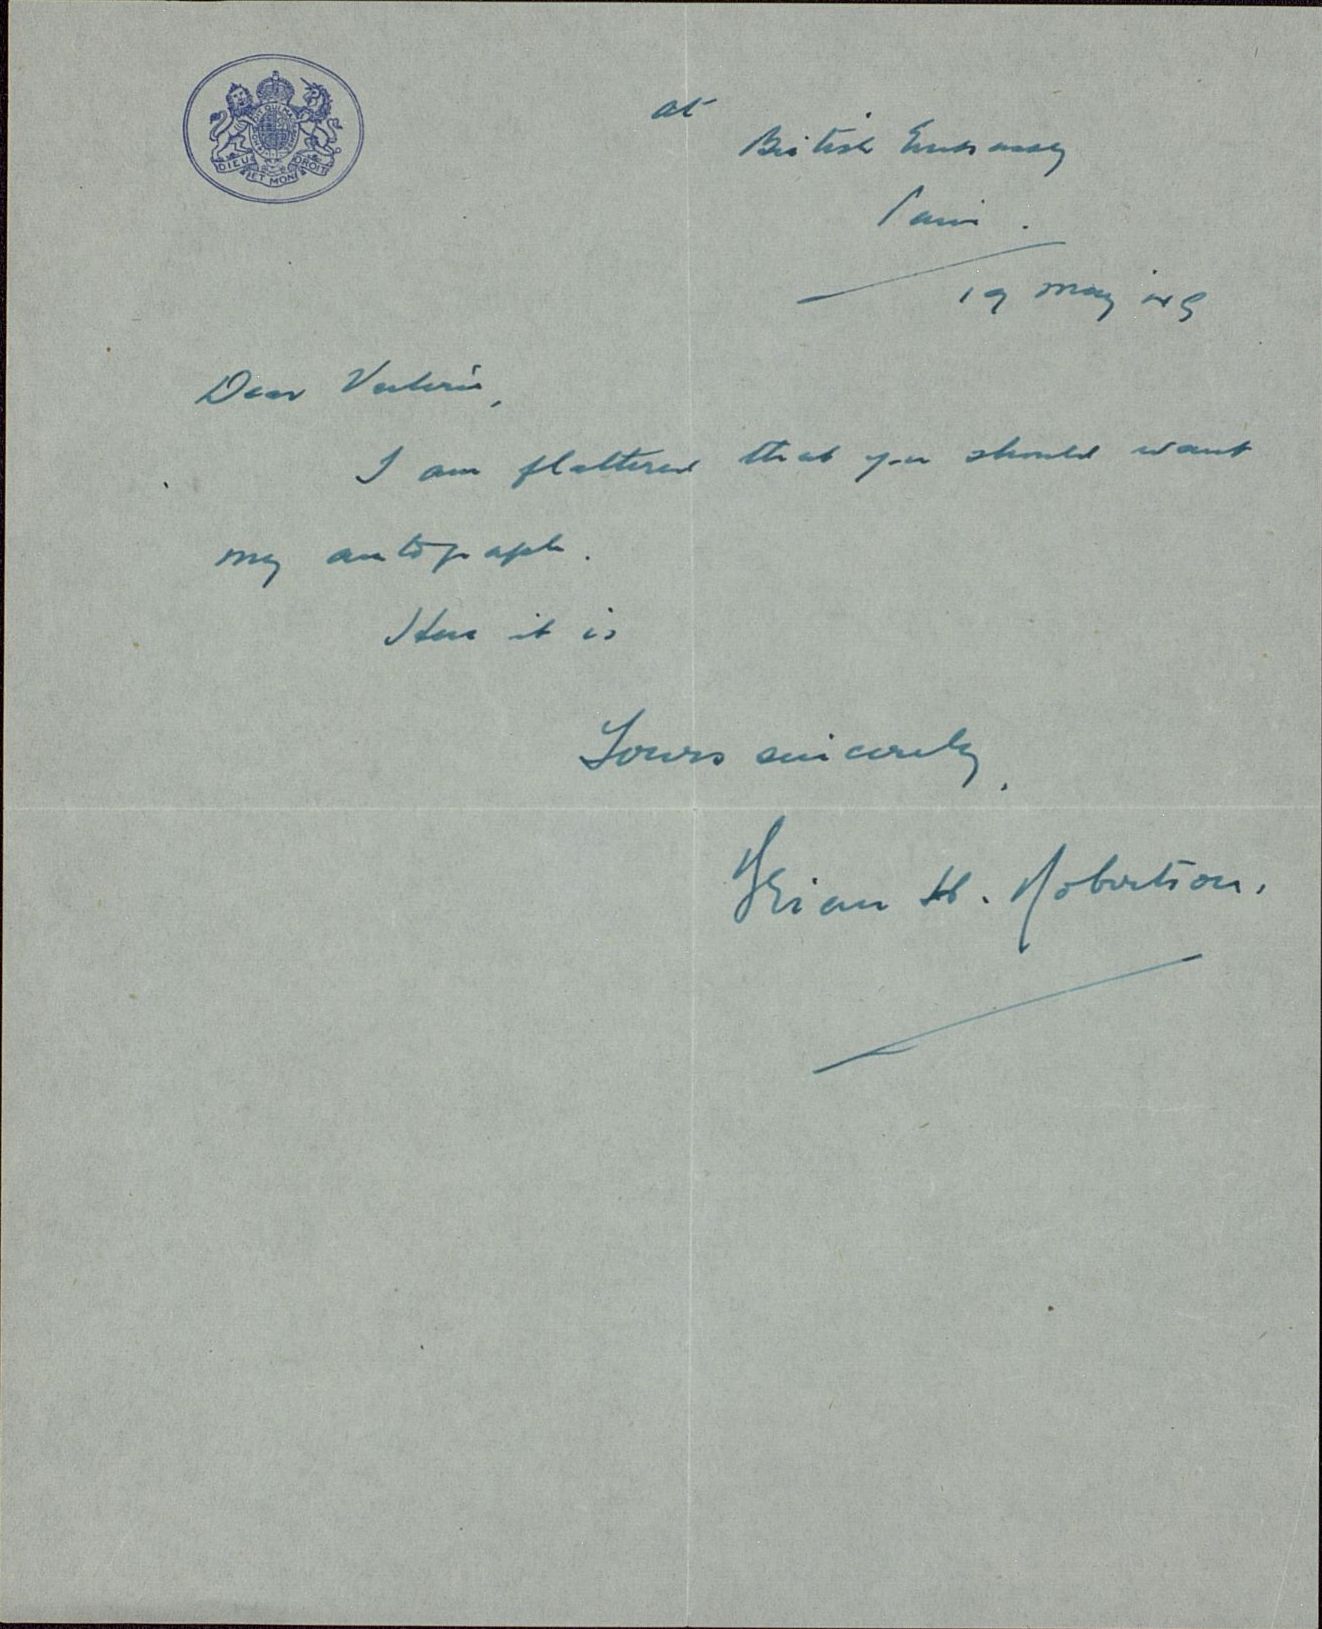 HONI SOIT QUI MAL Y PENSE
DIEU ET MON DROIT
at
British Embassy
Paris.
19 May '49
Dear Valerie,
I am flattered that you should want
my autograph.
Here it is
Yours sincerely,
Brian H. Robertson.